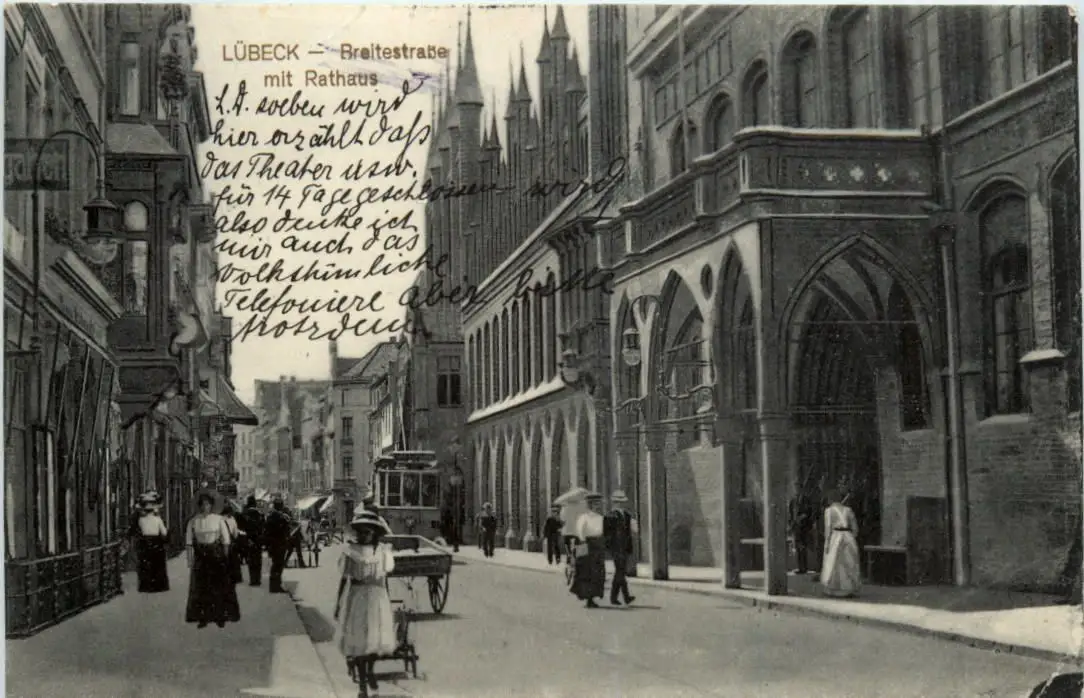 LÜBECK — Breitestraße
mit Rathaus
L.A. soeben wird
hier erzählt daß
das Theater usw.
für 14 Tage geschlossen wird
also denke ich
mir auch das
Volksthümliche
Telefoniere aber bitte
trotzdem